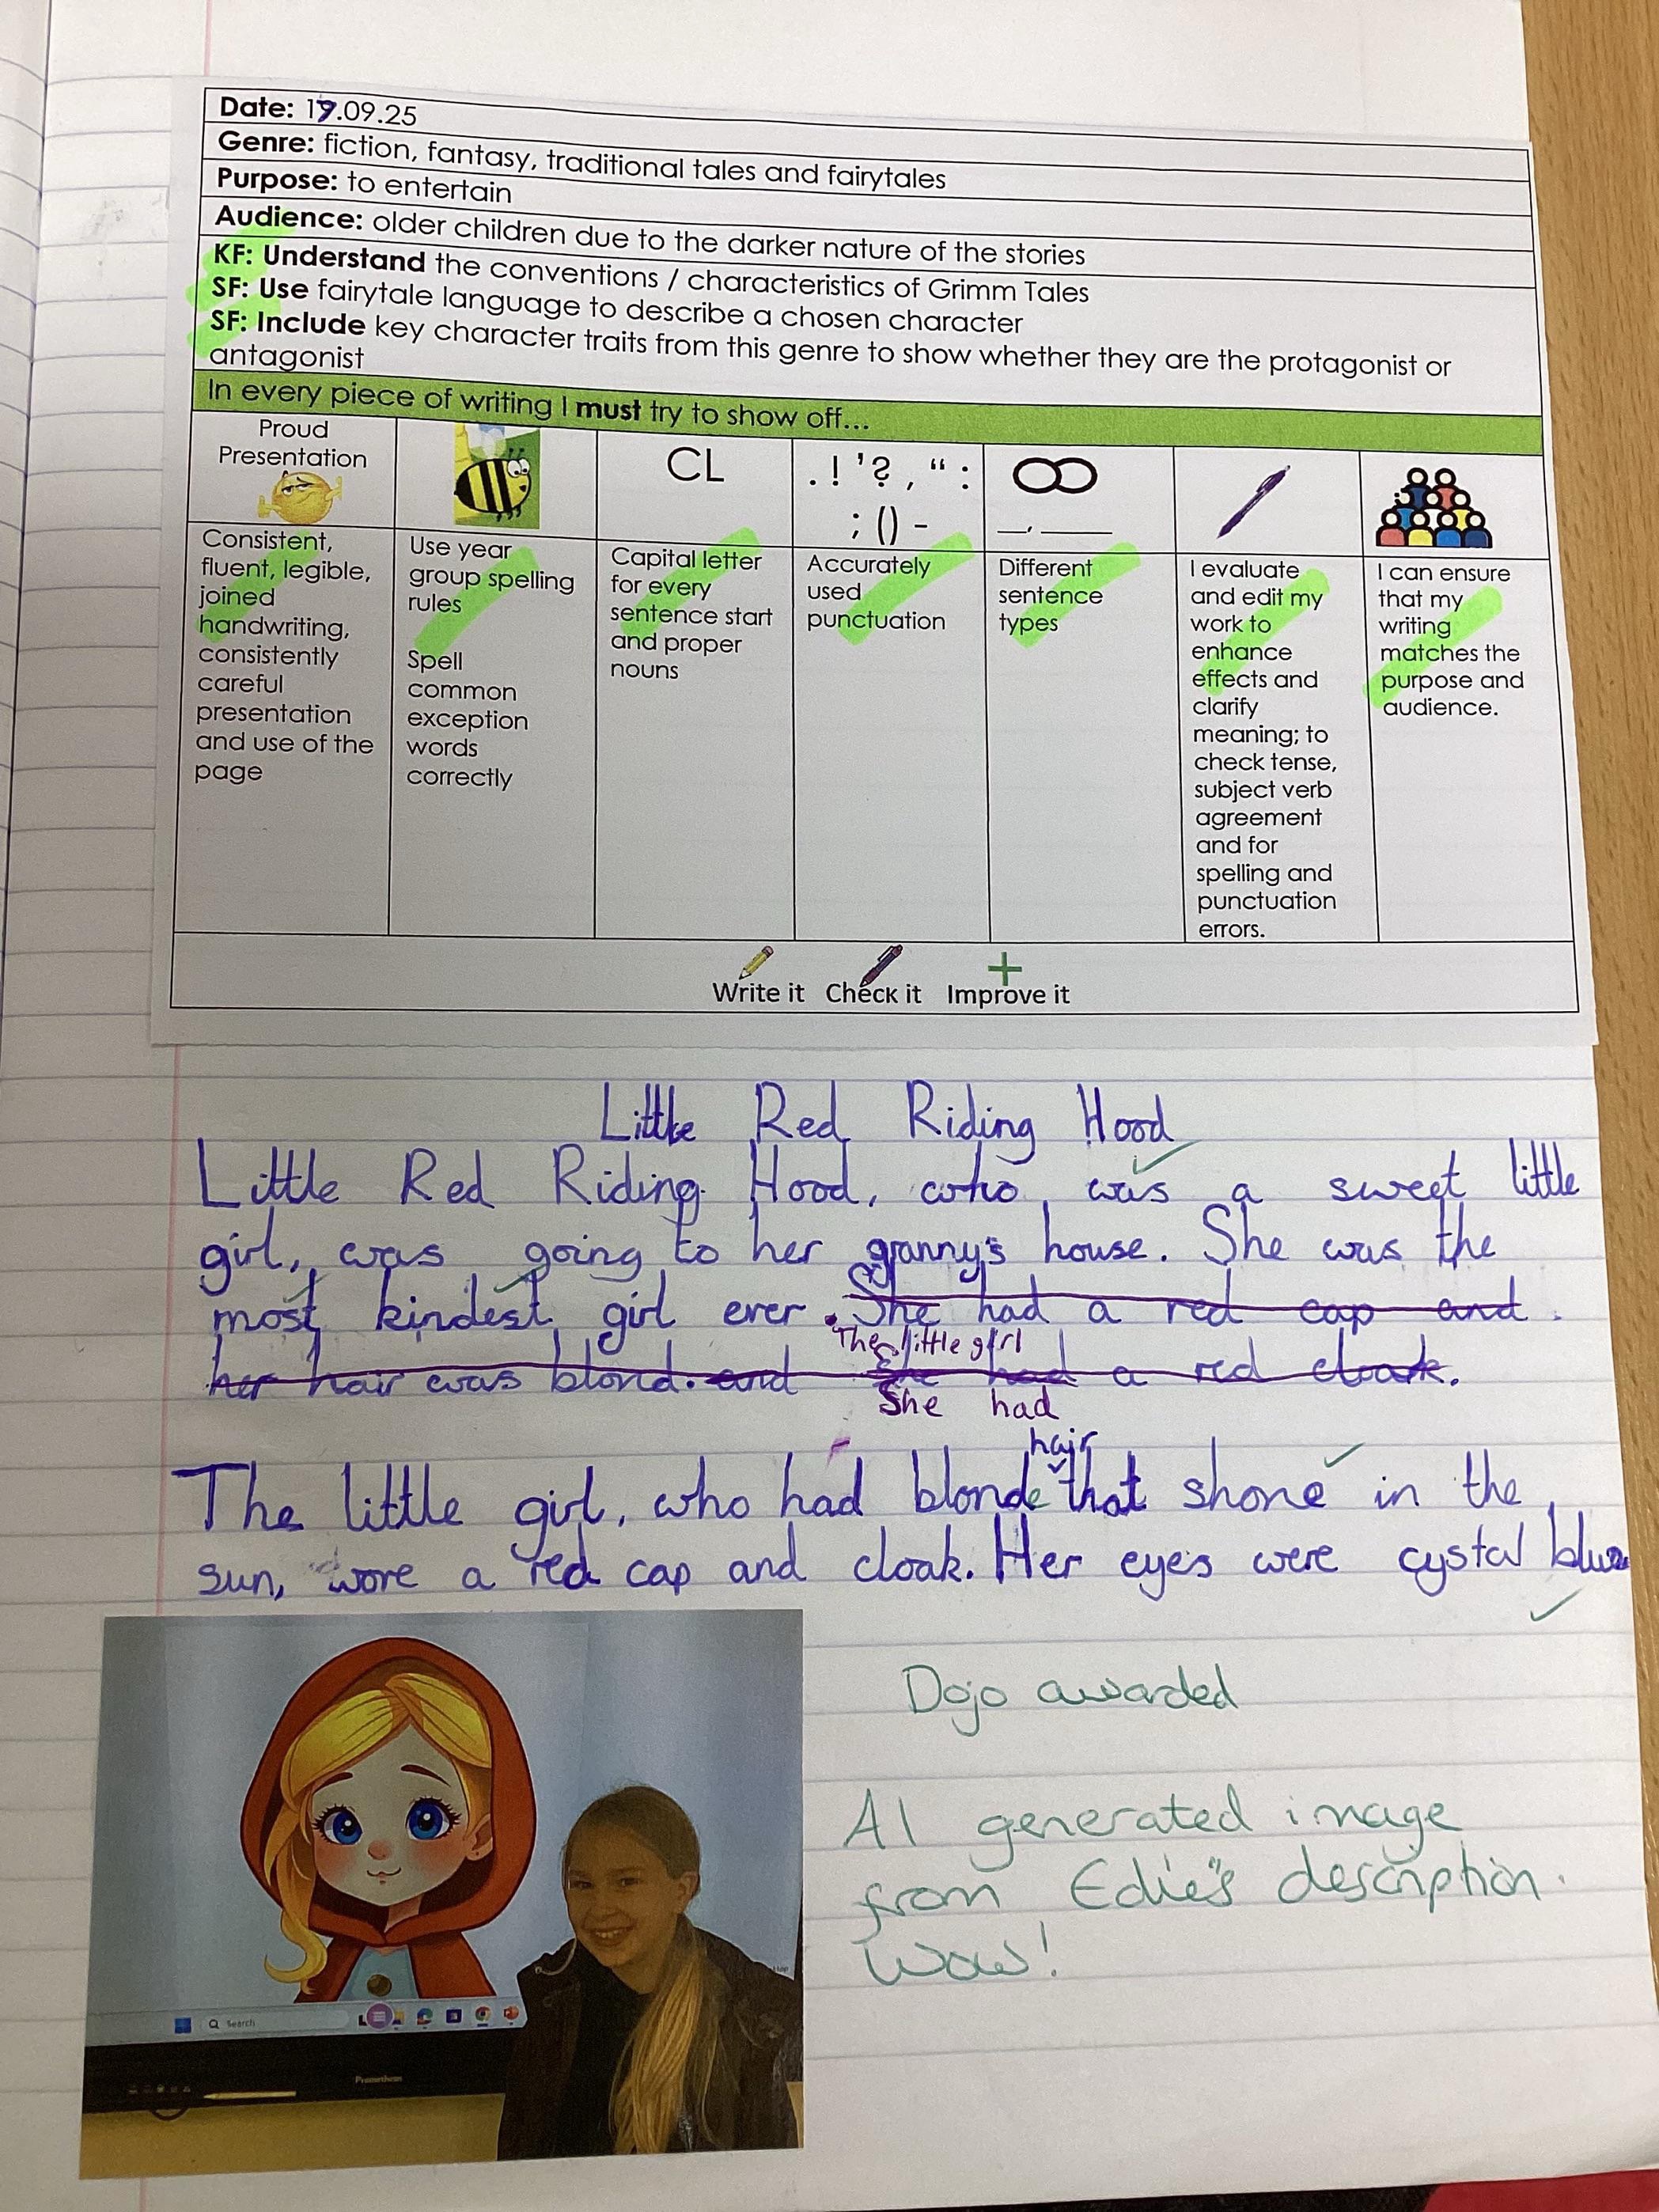 Date: 17.09.25
Genre: fiction, fantasy, traditional tales and fairytales
Purpose: to entertain
Audience: older children due to the darker nature of the stories
KF: Understand the conventions / characteristics of Grimm Tales
SF: Use fairytale language to describe a chosen character
SF: Include key character traits from this genre to show whether they are the protagonist or
antagonist
In every piece of writing I must try to show off...
Proud
Presentation
CL
. ! ' ? , " :
; () -
Consistent,
fluent, legible,
joined
handwriting,
consistently
careful
presentation
and use of the
page
Use year
group spelling
rules
Spell
common
exception
words
correctly
Capital letter
for every
sentence start
and proper
nouns
Accurately
used
punctuation
Different
sentence
types
I evaluate
and edit my
work to
enhance
effects and
clarify
meaning; to
check tense,
subject verb
agreement
and for
spelling and
punctuation
errors.
I can ensure
that my
writing
matches the
purpose and
audience.
Write it Check it Improve it
Little Red Riding Hood
Little Red Riding Hood, who was a sweet little
girl, was going to her granny's house. She was the
most kindest girl ever. She had a red cap and
The little girl
her hair was blond. and she had a red cloak.
She had
hair
The little girl, who had blonde that shone in the
sun, wore a red cap and cloak. Her eyes were cystal blue
Search
Promethean
Dojo awarded
AI generated image
from Edie's description.
Wow!